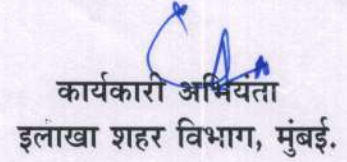 कार्यकारी अभियंता
इलाखा शहर विभाग, मुंबई.